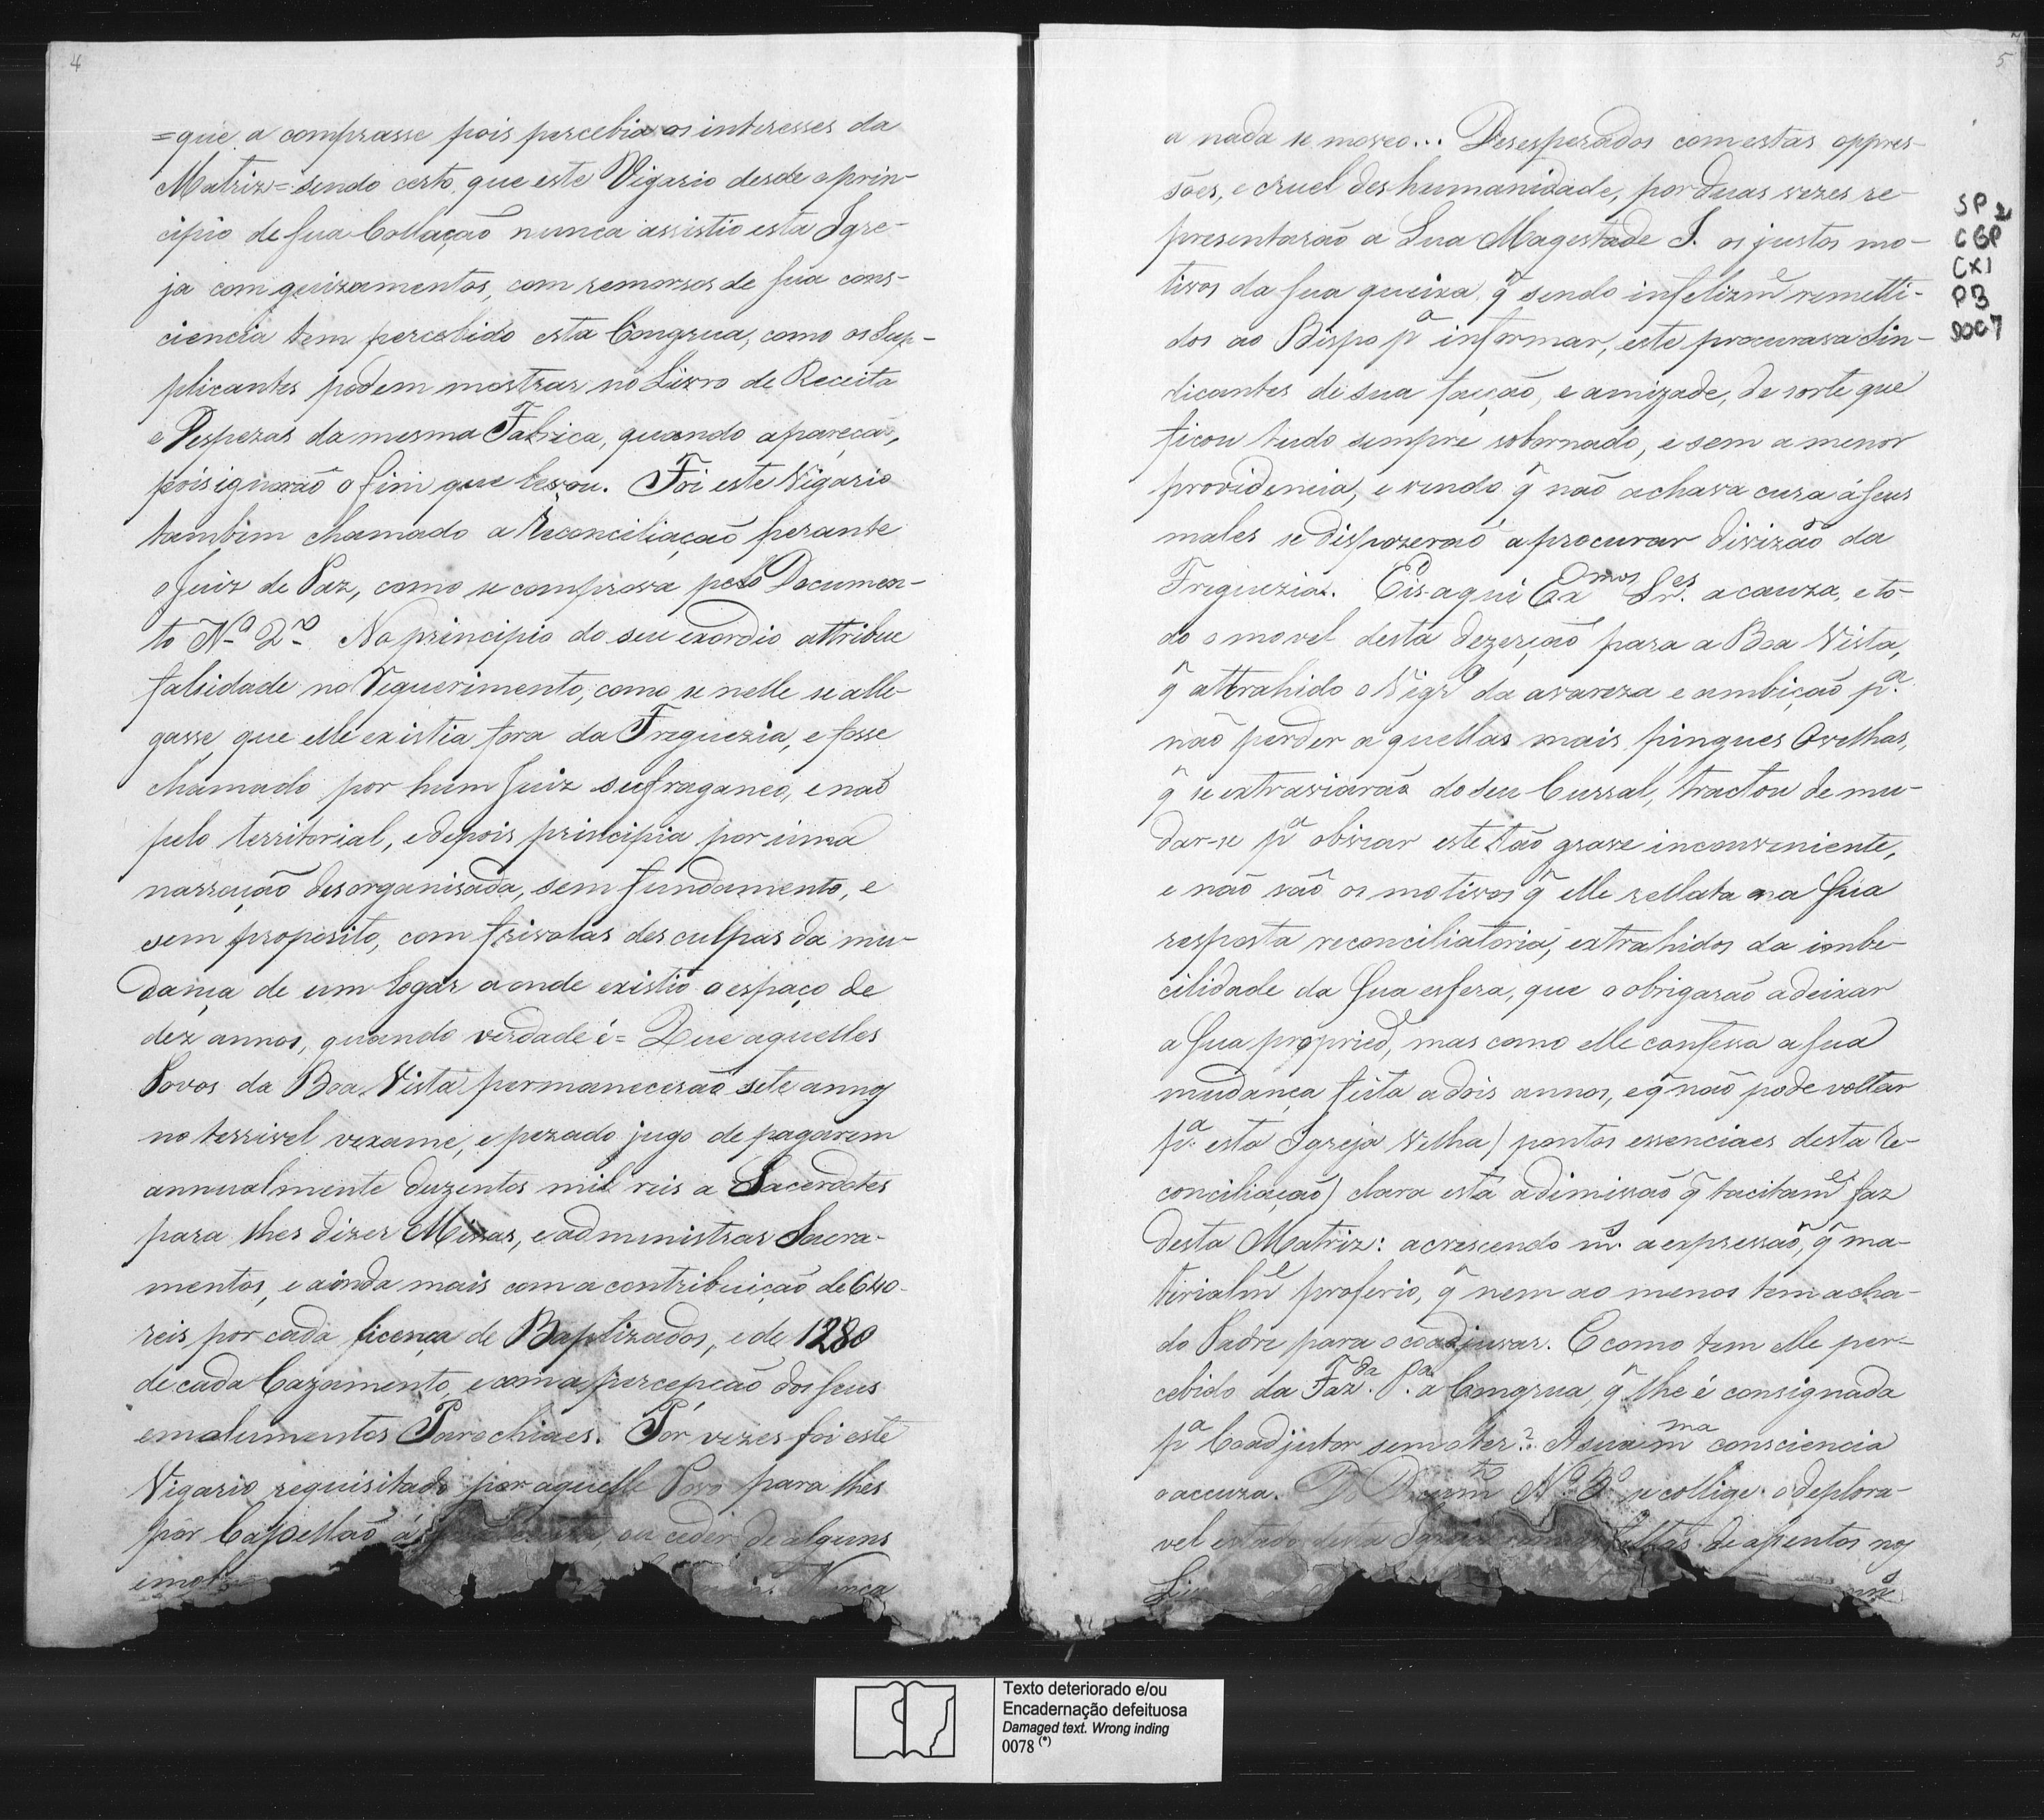 4
=que a comprasse pois percebia os interesses da
Matriz= sendo certo que este Vigario desde o prin-
cipio de sua Collação nunca assistio esta Igre-
ja com guizamentos, com remorsos de sua cons-
ciencia tem percebido esta Congrua, como os Sup-
plicantes podem mostrar no Livro de Receita
e Despezas da mesma Fabrica, quando apareção,
pois ignorão o fim que levou. Foi este Vigario
tambem chamado a Reconciliação perante
o Juiz de Paz, como se comprova pelo Documen-
to Nº 2º. No principio do seu exordio attribue
falsidade no Requerimento, como se nelle se alle-
gasse, que elle existia fora da Freguezia, e fosse
chamado por hum Juiz sufraganeo, e naõ
pelo territorial, e depois principia por uma
narração desorganisada, sem fundamento, e
sem proposito, com frivolas desculpas da mu-
dança de um logar aonde existio o espaço de
dez annos, quando verdade é= Que aquelles
Povos da Boa Vista permanecerão sete annos
no terrivel vexame, e pezado jugo de pagarem
annualmente duzentos mil reis a Sacerdotes
para lhes dizer Missas, e administrar Sacra-
mentos, e ainda mais com a contribuição de 640-
reis por cada licença de Baptizados, e de 1280
de cada Cazamento, e com a percepção dos seus
emolumentos Parochiaes. Por vezes foi este
Vigario requisitado por aquelle Povo para lhes
pôr Capellaõ á ou ceder de alguns
emol Nunca
5
a nada se moveo... Desesperados com estas oppres-
sões, e cruel deshumanidade, por duas vezes re-
presentarão a Sua Magestade I. os justos mo-
tivos da sua queixa, q̃ sendo infelizmᵉ remetti-
dos ao Bispo pª informar, este procurava Sin-
dicantes de sua facção, e amizade, de sorte que
ficou tudo sempre sobornado, e sem a menor
providencia, e vendo q̃ não achava cura á seus
males se dispozeraõ a procurar divizão da
Freguezia. Eis aqui Exᵐᵒˢ Srᵉˢ. a cauza, e to-
do o movel desta dezerção para a Boa Vista,
q̃ attrahido o Vigrº da avareza e ambição pª.
não perder aquellas mais pingues Ovelhas,
q̃ se extraviarão do seu Curral, tractou de mu-
dar-se pª obviar este tão grave inconveniente,
e não são os motivos q̃ elle rellata na sua
resposta reconciliatoria, extrahidos da imbe-
cilidade da sua esfera, que o obrigarão a deixar
a sua propriedᵉ, mas como elle confessa a sua
mudança feita a dois annos, e q̃ não pode voltar
pª. esta Igreja Velha (pontos essenciaes desta Re-
conciliação) clara está a dimissão q̃ tacitamᵉ faz
desta Matriz: acrescendo mˢ. a expressão, q̃ ma-
terialmᵉ proferio, q̃ nem ao menos tem acha-
do Padre para o coadjuvar. E como tem elle per-
cebido da Fazᵈᵃ. Pᵃ. a Congrua, q̃ lhe é consignada
pª Coadjutor sem o ter? A sua mᵐᵃ consciencia
o accuza. Do Documᵗᵒ Nº 3º se collige o deplora-
vel estado desta Igreja faltas de assentos nos
Li
SP 2
CGP
CX1
P3
DOC7
Texto deteriorado e/ou
Encadernação defeituosa
Damaged text. Wrong inding
0078 (*)